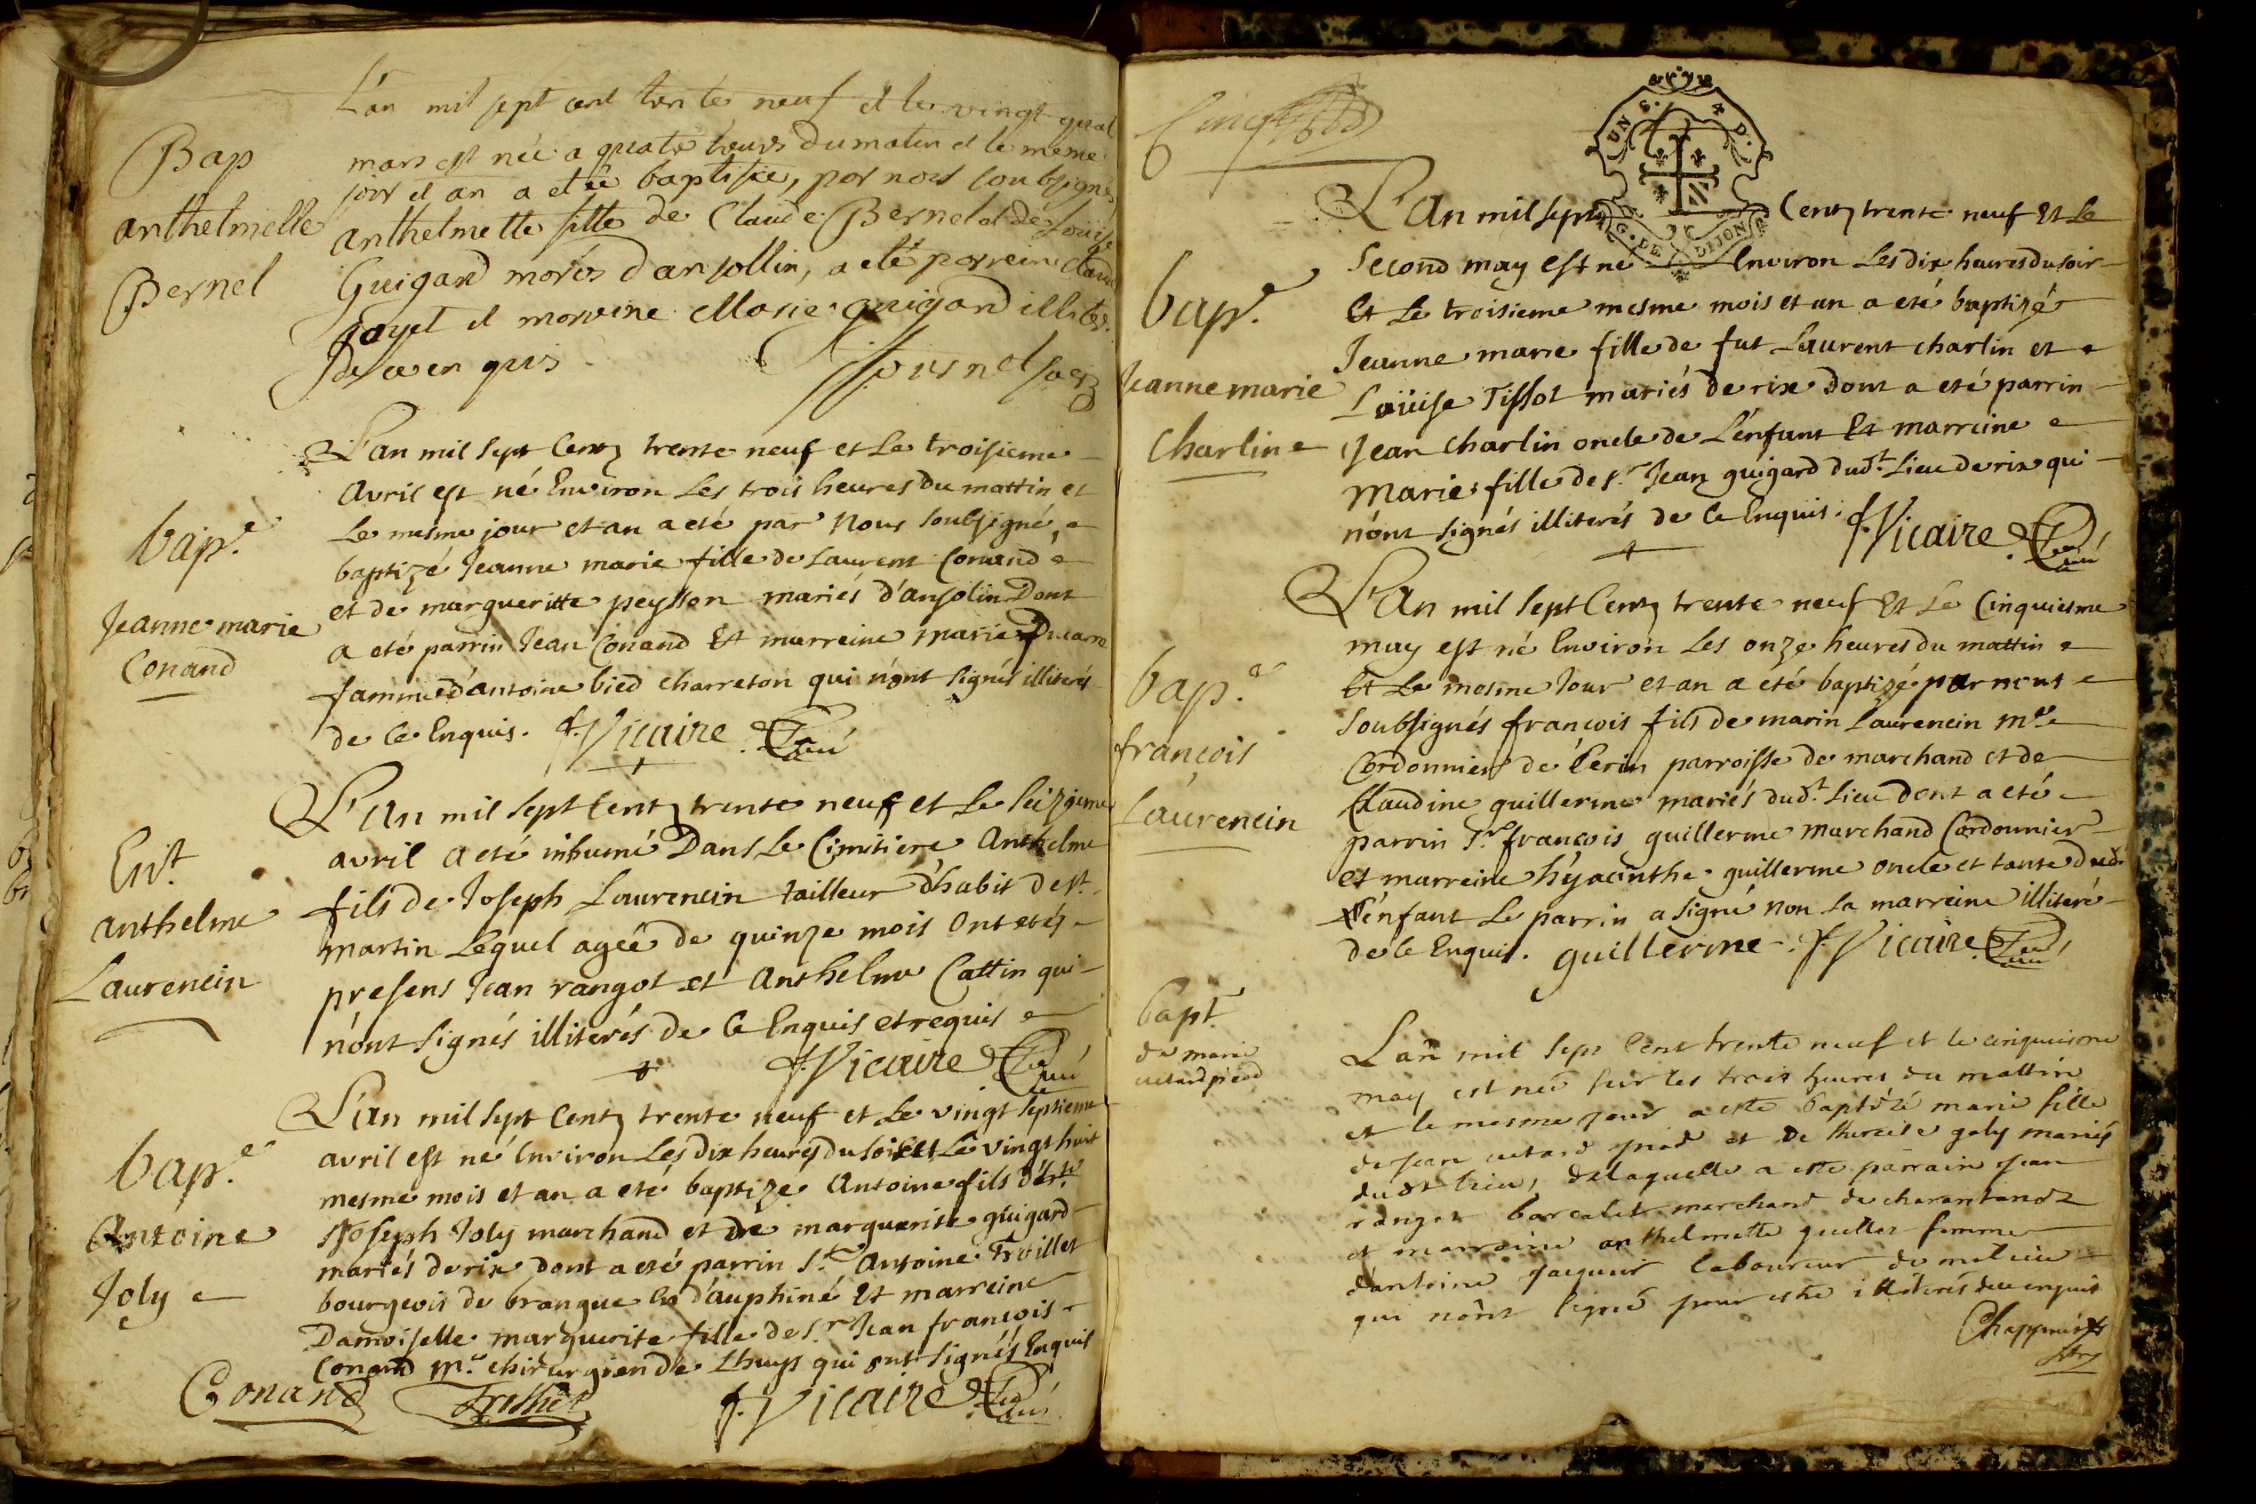 L'an mil sept cent trente neuf et le vingt quat
mars est née a quatre heurs du matin et le meme
jour et an a etée baptisée, par nous soubsigné
anthelmette fille de Claude Bernel et de Louise
Guigard mariés d'ansollin, a eté parrein Claude
goyet et marreine Marie guigard illiteres
de ce en quis
Bap
anthelmelle
Bernel
L'an mil sept Centz trente neuf et Le troisieme
Avril est né Environ Les trois heures du mattin et
Le mesme jour et an a eté par Nous soubsigné,
baptizé Jeanne marie fille de Laurent Conand
et de margueritte peysson mariés d'ansolin Dont
a eté parrin Jean Conand Et marreine marie Ducarre
famme d'antoine bied charreton qui n'ont signés illiterés
de Ce Enquis. f. Vicaire Curé
bap.e
Jeanne marie
Conand
L'An mil sept Centz trente neuf et Le seizieme
avril a eté inhumé Dans Le Cimitiere Anthelme
fils de Joseph Laurencin tailleur d'habit de st.
martin Lequel ageé de quinze mois Ont etés
presens Jean rangot et Anthelme Cattin qui
n'ont signés illiterés de Ce Enquis et requis
f. Vicaire Curé
Ent.
anthelme
Laurencin
L'an mil sept Centz trente neuf et Le vingt septieme
avril est né Environ Les dix heures du soir et Le vingt huit
mesme mois et an a eté baptize Antoine fils de sr.
Joseph Joly marchand et de marguerite guigard
mariés de rix dont a eté parrin sr. Antoine Trolliet
bourgeois de brangue en d'auphiné Et marreine
Damoiselle marguerite fille de sr. Jean françois
Conand me. chirurgien de Lhuys qui ont signés Enquis
Conand Trolliet f. Vicaire Curé
bap.e
Antoine
Joly
L'An mil sept Centz trente neuf Et Le
UN S. 4 D.
G. DE DIJON
Second may est né Environ Les dix heures du soir
Et Le troisieme mesme mois et an a eté baptizé
Jeanne marie fille de fut Laurent charlin et
Loüise Tissot mariés de rix dont a eté parrin
Jean Charlin oncle de L'enfant Et marreine
Marie fille de sr. Jean guigard dud.t Lieu de rix qui
n'ont signés illiterés de Ce Enquis. f. Vicaire Curé
bap.e
Jeanne marie
Charlin
L'An mil sept Centz trente neuf Et Le Cinquiesme
may est né Environ Les onze heures du mattin
Et Le mesme Jour et an a eté baptizé par nous
Soubsignés françois fils de marin Laurencin me
Cordonnier de Cerin parroisse de marchand et de
Claudine guillerme mariés dud.t Lieu Dont a eté
parrin sr. françois guillerme Marchand Cordonnier
et marreine hÿacinthe guillerme oncle et tante dud.
L'enfant Le parrin a signé Non La marreine illiteré
de Ce Enquis. guillerme. f. Vicaire Curé
bap.e
françois
Laurencin
L'an mil sept Cent trente neuf et le cinquiesme
may est née sur les trois heures du mattin
et le mesme jour a esté baptizé marie fille
de jean cutard piod et de therese goly mariés
dudt lieu, de laquelle a esté parrain jean
marchand de
et marraine anthelmette guillet femme
d'antoine laboureur
qui n'ont signé pour estre illiterés de ce enquis
bapt.
de marie
cutard piod